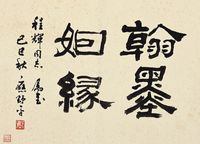 翰墨
姻缘
桂辉同志属书
己巳秋